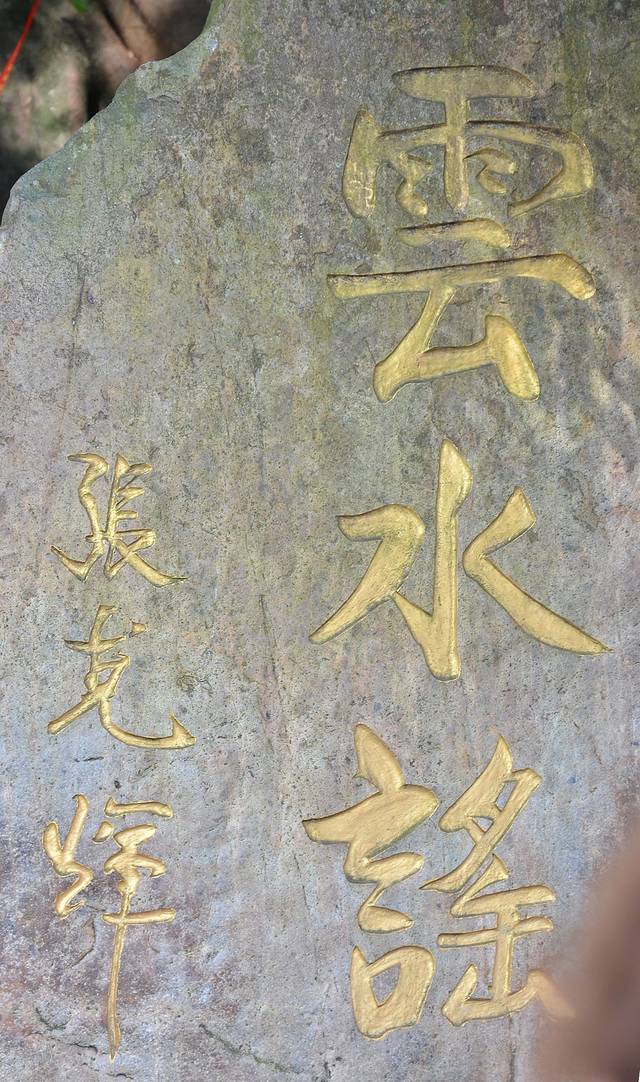 雲水謠
張克輝